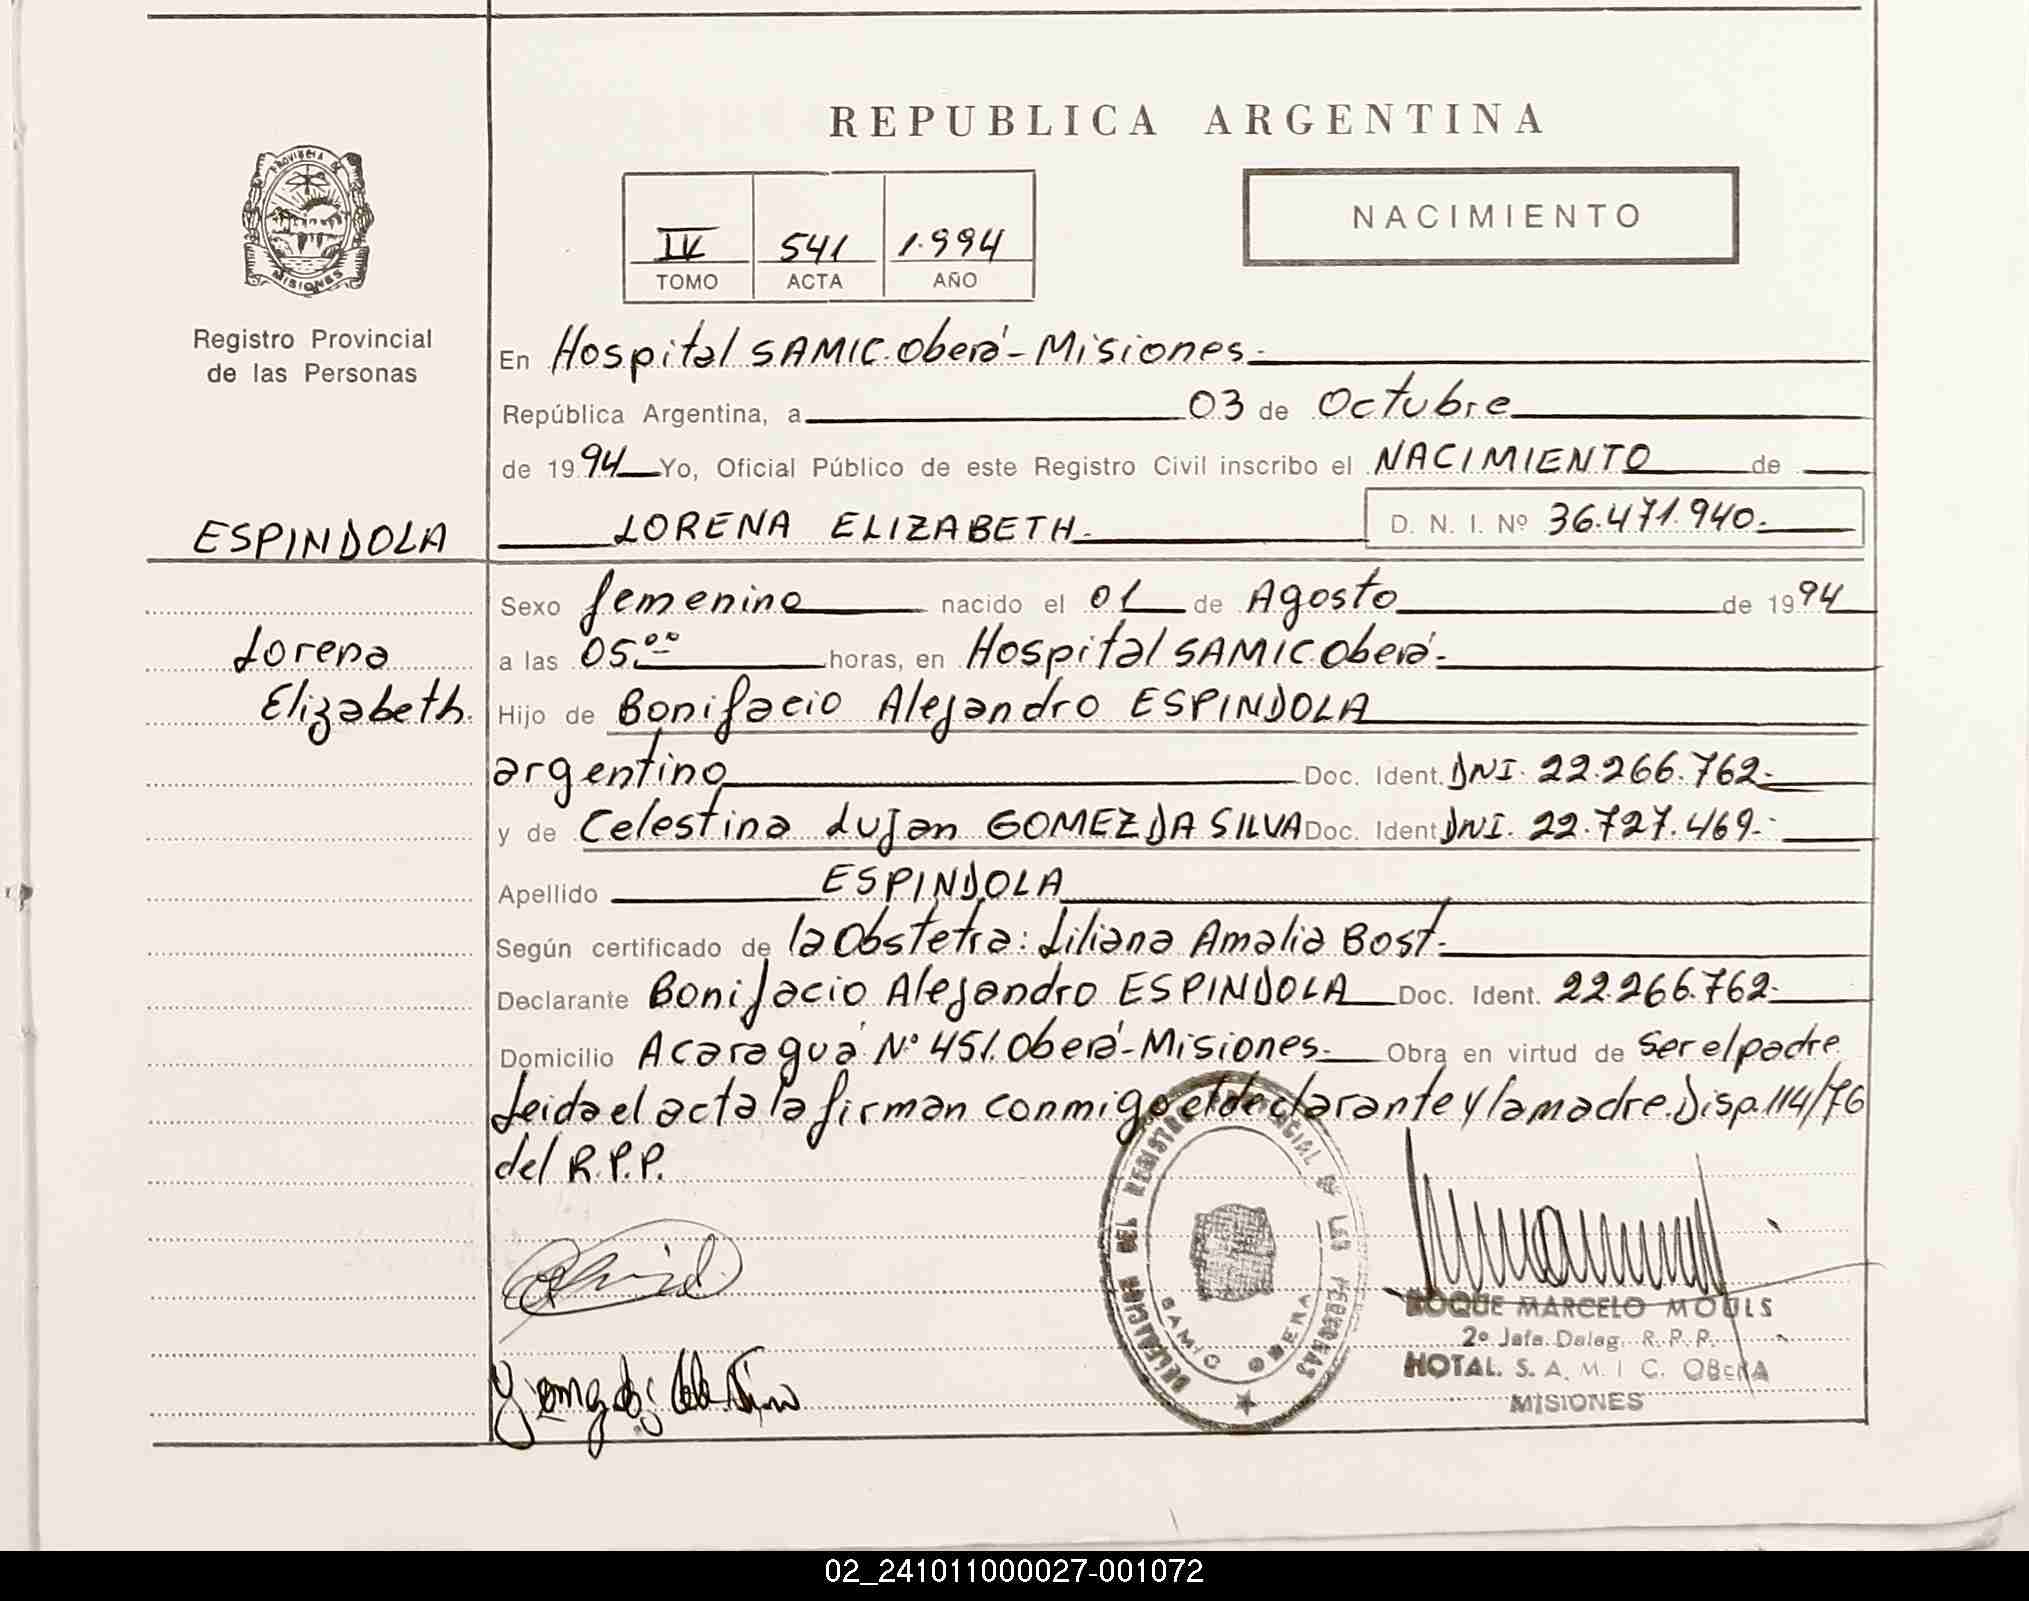 REPUBLICA ARGENTINA
PROVINCIA DE
MISIONES
Registro Provincial
de las Personas
IV 541 1.994
TOMO ACTA AÑO
NACIMIENTO
En Hospital SAMIC. Oberá - Misiones.-
República Argentina, a 03 de Octubre
de 1994 Yo, Oficial Público de este Registro Civil inscribo el NACIMIENTO de
ESPINDOLA
LORENA ELIZABETH.- D. N. I. Nº 36.471.940.-
Lorena
Elizabeth.
Sexo femenino nacido el 01 de Agosto de 1994
a las 05.00 horas, en Hospital SAMIC. Oberá.-
Hijo de Bonifacio Alejandro ESPINDOLA
argentino Doc. Ident. DNI. 22.266.762.-
y de Celestina Lujan GOMEZ DA SILVA Doc. Ident DNI. 22.727.469.-
Apellido ESPINDOLA
Según certificado de la Obstetra: Liliana Amalia Bost.-
Declarante Bonifacio Alejandro ESPINDOLA Doc. Ident. 22.266.762.-
Domicilio Acaraguá Nº 451. Oberá - Misiones.- Obra en virtud de ser el padre
Leida el acta la firman conmigo el declarante y la madre. Disp. 114/76
del R.P.P.
DELEGACION DEL REGISTRO PROVINCIAL DE LAS PERSONAS
SAMIC OBERA
ROQUE MARCELO MOULS
2º Jefe Deleg. R. P. P.
HOTAL. S. A. M. I C. OBERA
MISIONES
02_241011000027-001072